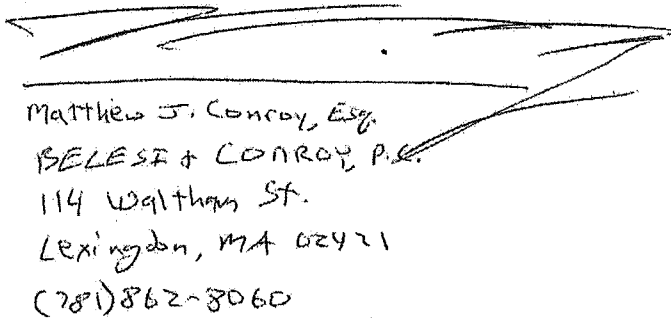 Matthew J. Conroy, Esq.
BELESI & CONROY, P.C.
114 Waltham St.
Lexingdon, MA 02421
(781)862-8060